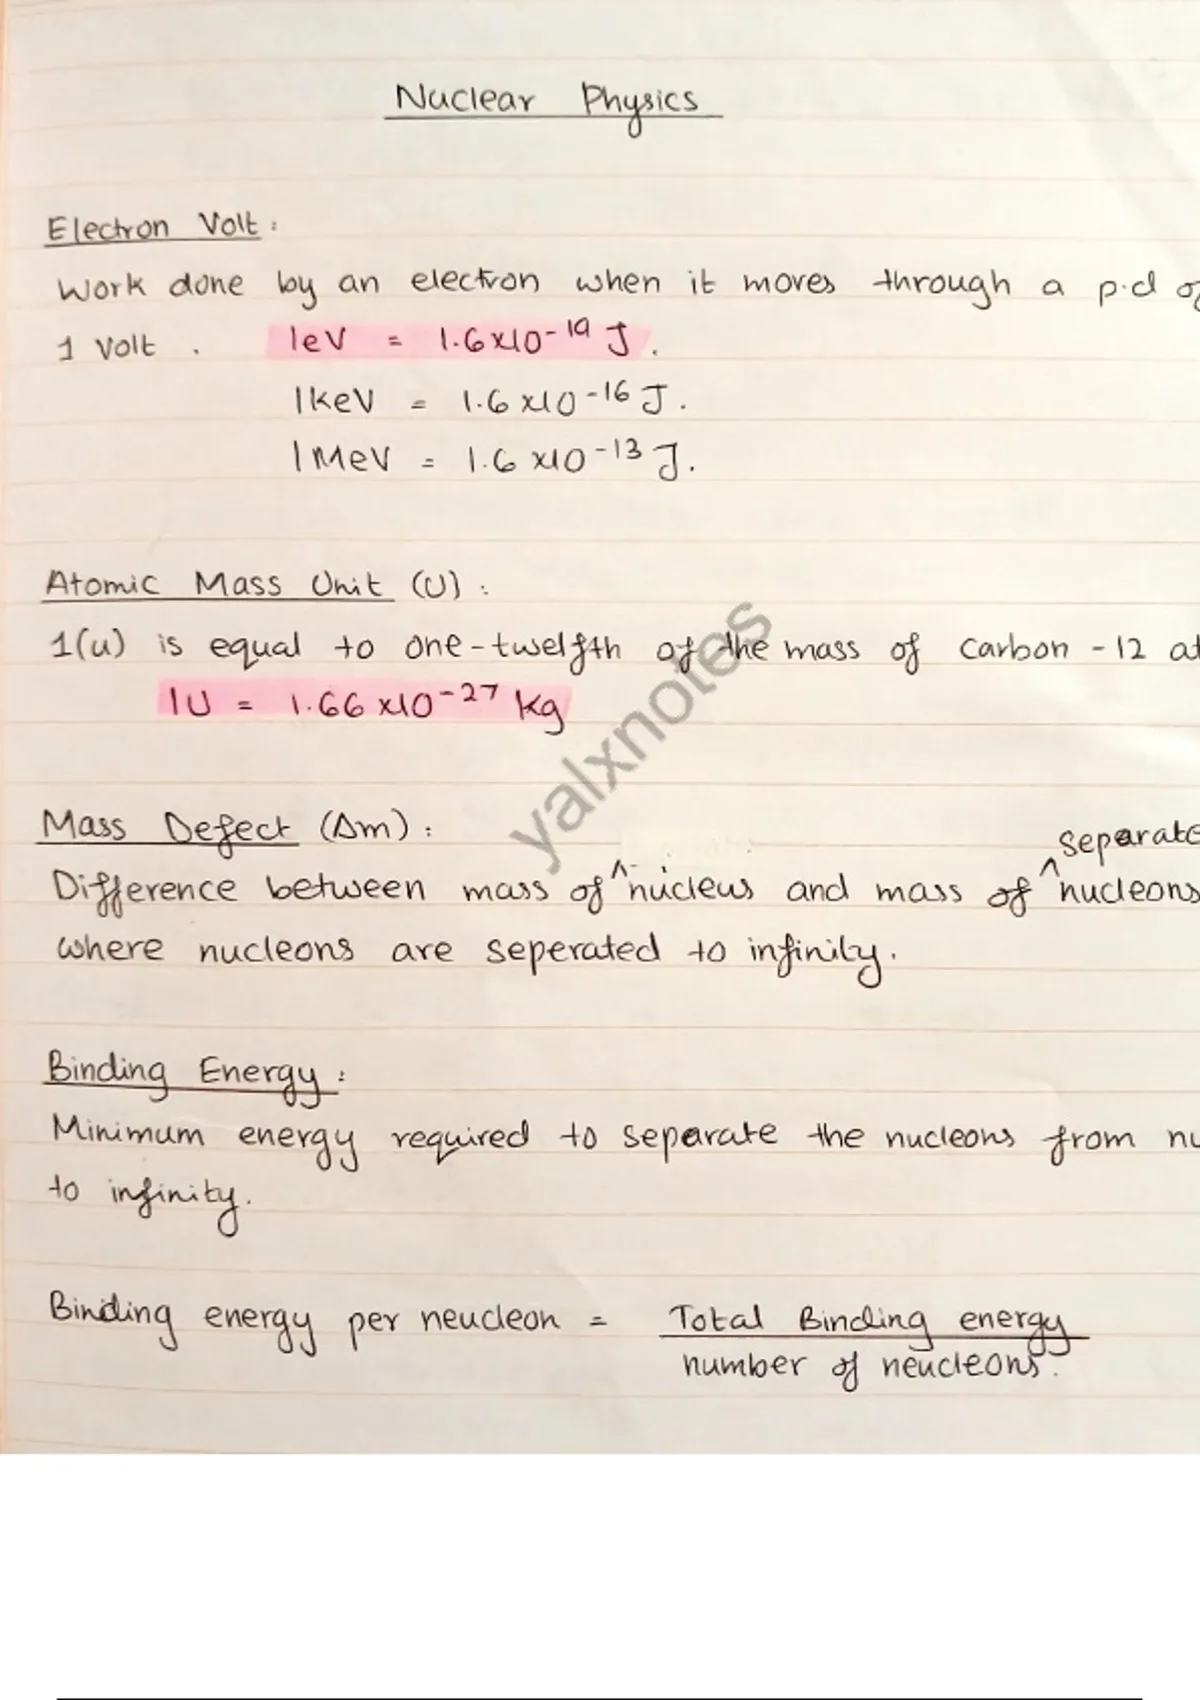 Nuclear Physics
Electron Volt :
Work done by an electron when it moves through a p.d of
1 Volt . 1eV = 1.6x10-19 J.
1keV = 1.6x10-16 J.
1MeV = 1.6x10-13 J.
Atomic Mass Unit (U) :
1(u) is equal to one-twelfth of the mass of carbon -12 at
1U = 1.66x10-27 kg
yalxnotes
Mass Defect (Δm) :
separate
Difference between mass of ^nucleus and mass of ^nucleons
where nucleons are seperated to infinity.
Binding Energy :
Minimum energy required to separate the nucleons from nu
to infinity.
Binding energy per neucleon = Total Binding energy
number of neucleons.